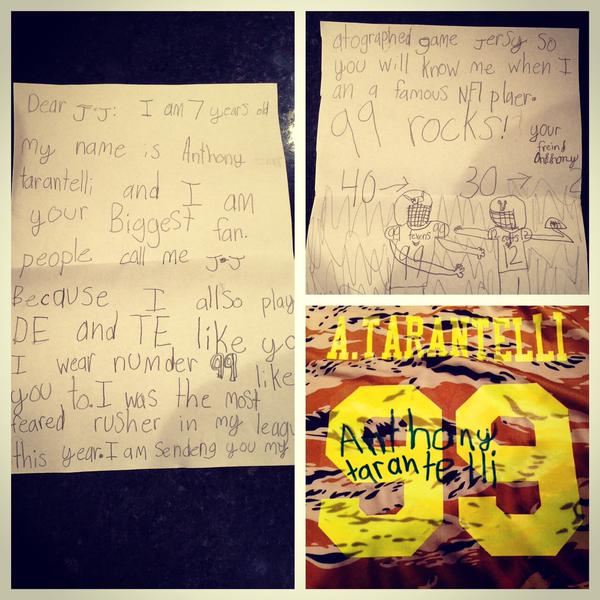 Dear J.J: I am 7 years old
my name is Anthony
tarantelli and I am
your Biggest fan.
people call me J.J
Because I allso play
DE and TE like yo
I wear numder 99 like
you to. I was the most
feared rusher in my leagu
this year. I am Sendeng you my
atographed game Jersy So
you will know me when I
an a famous NFl plaer.
99 rocks! your
freind
Anthony
40→ 30→
texens
99
2
A.TARANTELLI
99
Anthony
tarantelli